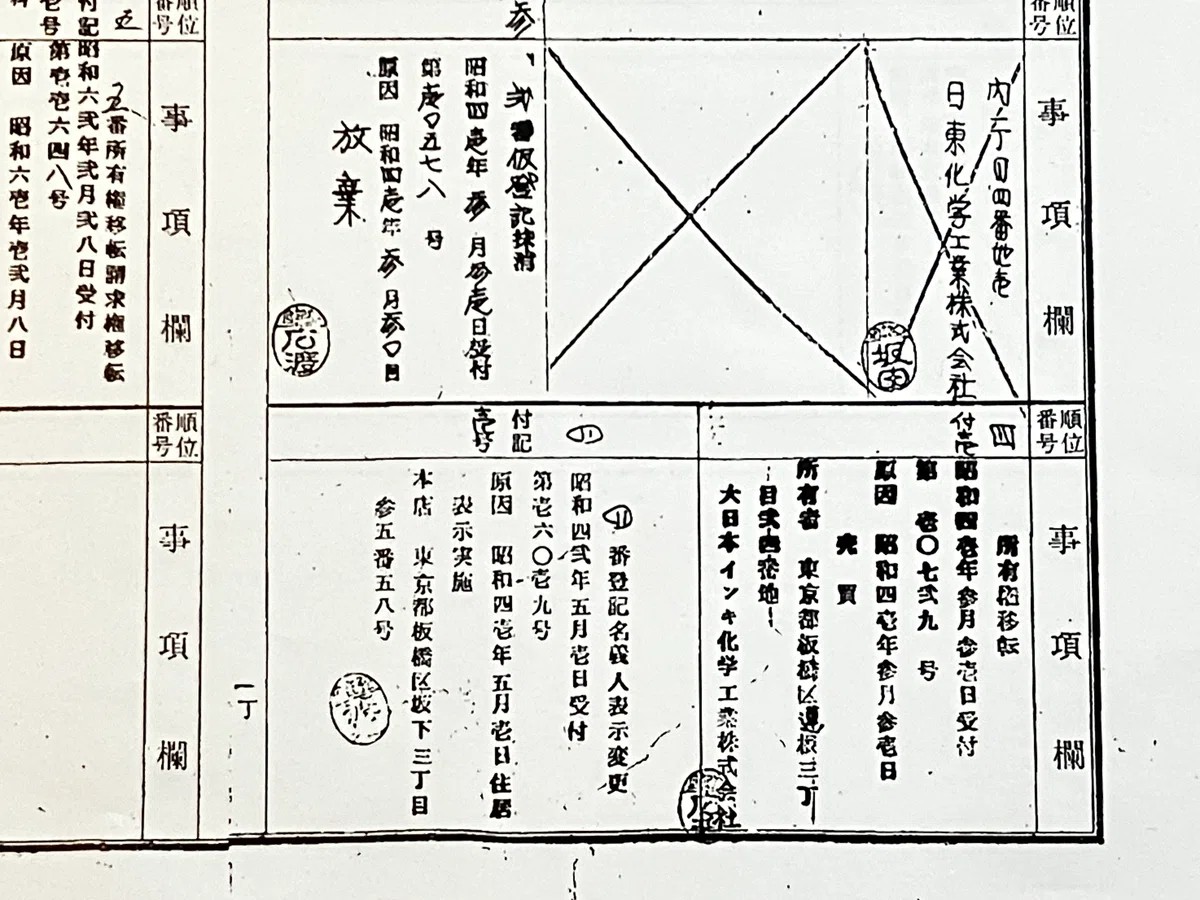 順位番号
事項欄
内丁目四番地壱
日東化学工業株式会社
坂田
参
弐番仮登記抹消
昭和四壱年参月参壱日受付
第壱〇五七八号
原因 昭和四壱年参月参〇日
放棄
広渡
順位番号
事項欄
四
付壱
所有権移転
昭和四壱年参月参壱日受付
第壱〇七弐九号
原因 昭和四壱年参月参壱日
売買
所有者 東京都板橋区蓮根三丁
目弐四番地
大日本インキ化学工業株式会社
付記
壱号
番登記名義人表示変更
昭和四弐年五月壱日受付
第壱六〇壱九号
原因 昭和四壱年五月壱日住居
表示実施
本店 東京都板橋区坂下三丁目
参五番五八号
一丁
順位番号
五
付記
壱号
事項欄
五番所有権移転請求権移転
昭和六弐年弐月弐八日受付
第壱壱六四八号
原因 昭和六壱年壱弐月八日
順位番号
事項欄